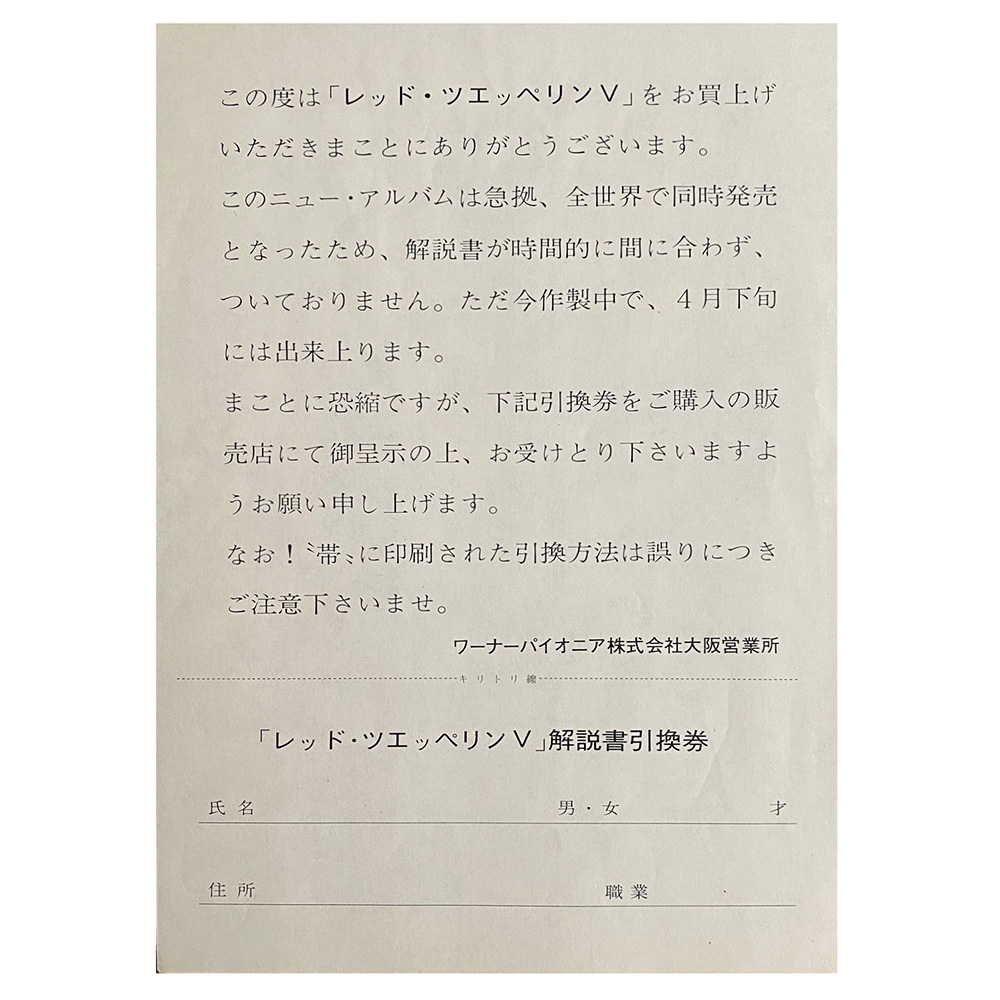 この度は「レッド・ツエッペリンⅤ」をお買上げ
いただきまことにありがとうございます。
このニュー・アルバムは急拠、全世界で同時発売
となったため、解説書が時間的に間に合わず、
ついておりません。ただ今作製中で、４月下旬
には出来上ります。
まことに恐縮ですが、下記引換券をご購入の販
売店にて御呈示の上、お受けとり下さいますよ
うお願い申し上げます。
なお！〝帯〟に印刷された引換方法は誤りにつき
ご注意下さいませ。
ワーナーパイオニア株式会社大阪営業所
キリトリ線
「レッド・ツエッペリンⅤ」解説書引換券
氏名 男・女 才
住所 職業